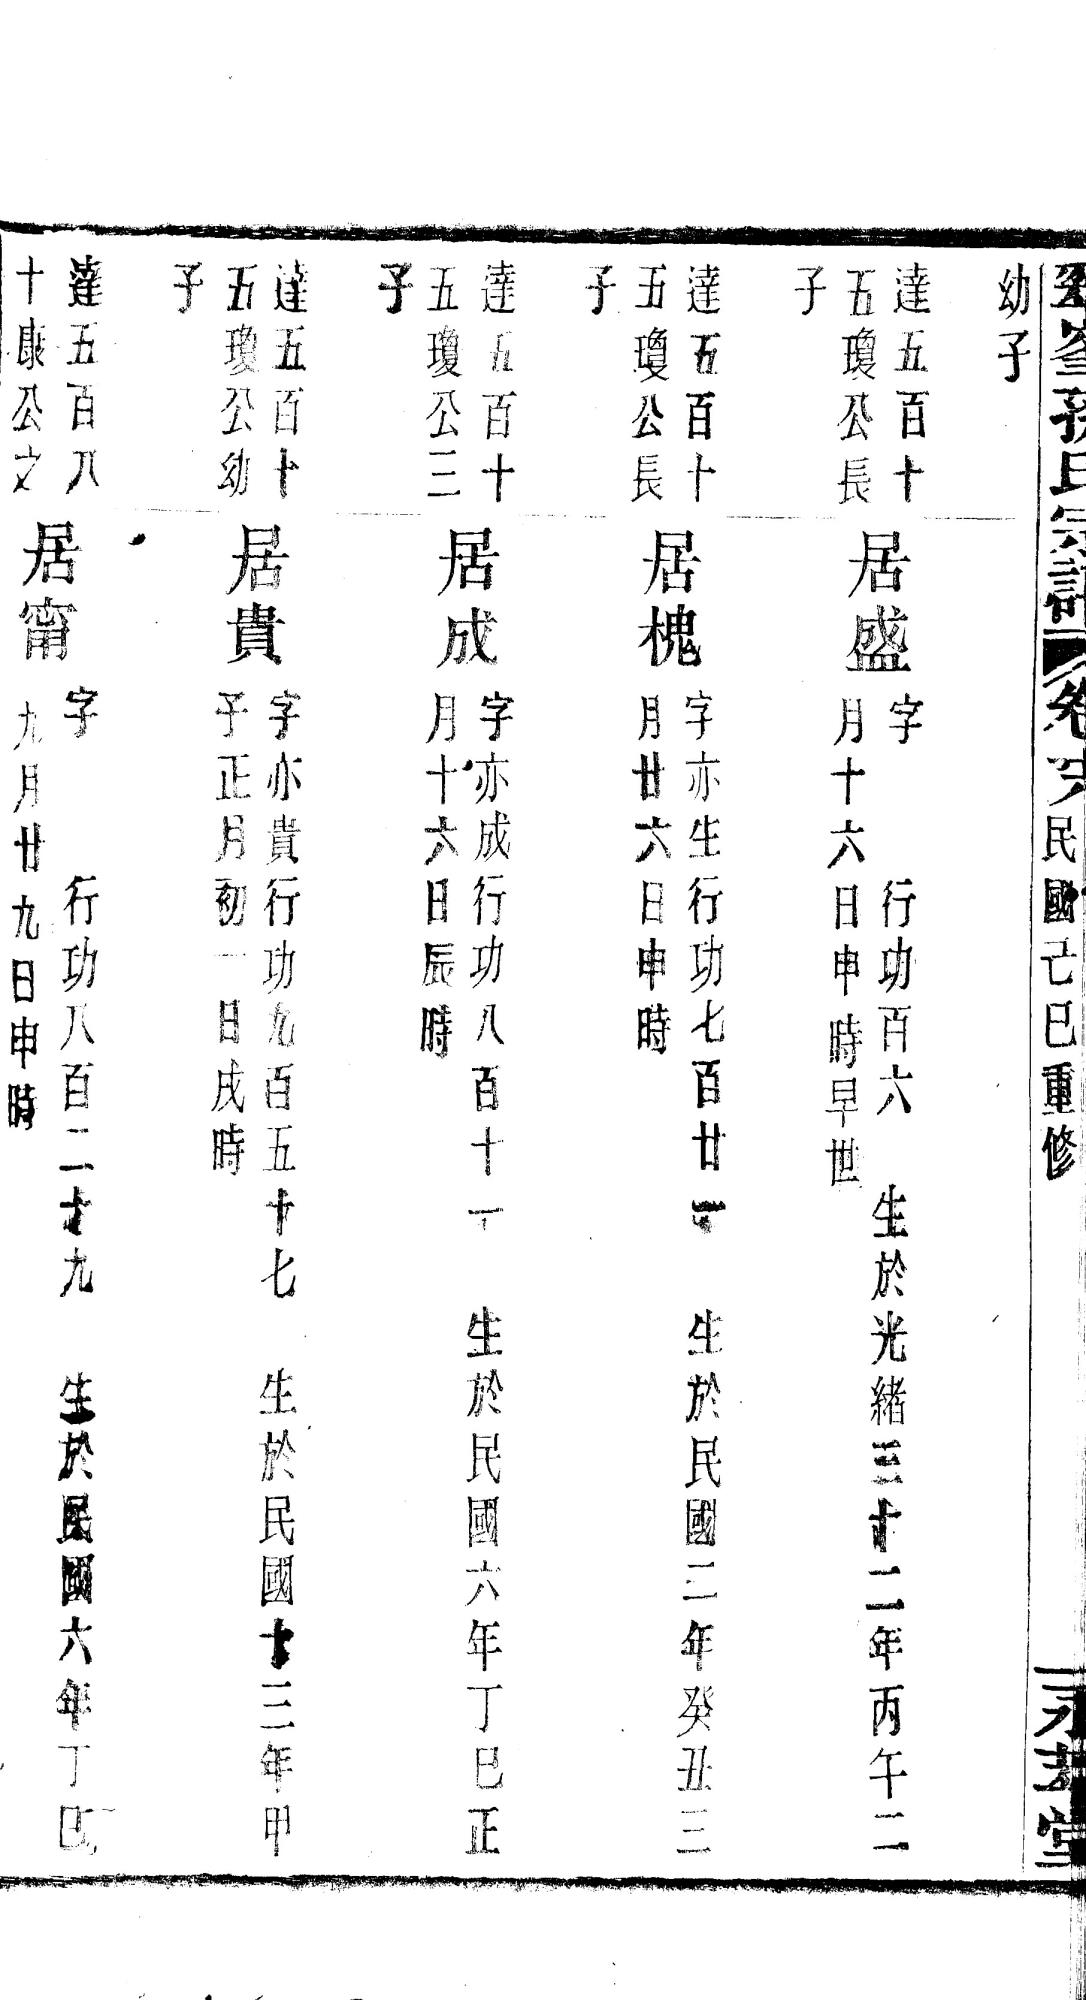 孫氏宗譜 卷六 民國己巳重修
堂
幼子
達五百十
五瓊公長
子
居盛
字 行功百六 生於光緒三十二年丙午二
月十六日申時早世
達五百十
五瓊公長
子
居槐
字亦生行功七百廿一 生於民國二年癸丑三
月廿六日申時
達五百十
五瓊公二
子
居成
字亦成行功八百十一 生於民國六年丁巳正
月十六日辰時
達五百十
五瓊公幼
子
居貴
字亦貴行功九百五十七 生於民國十三年甲
子正月初一日戌時
達五百八
十康公之
居甯
字 行功八百二十九 生於民國六年丁巳
九月廿九日申時